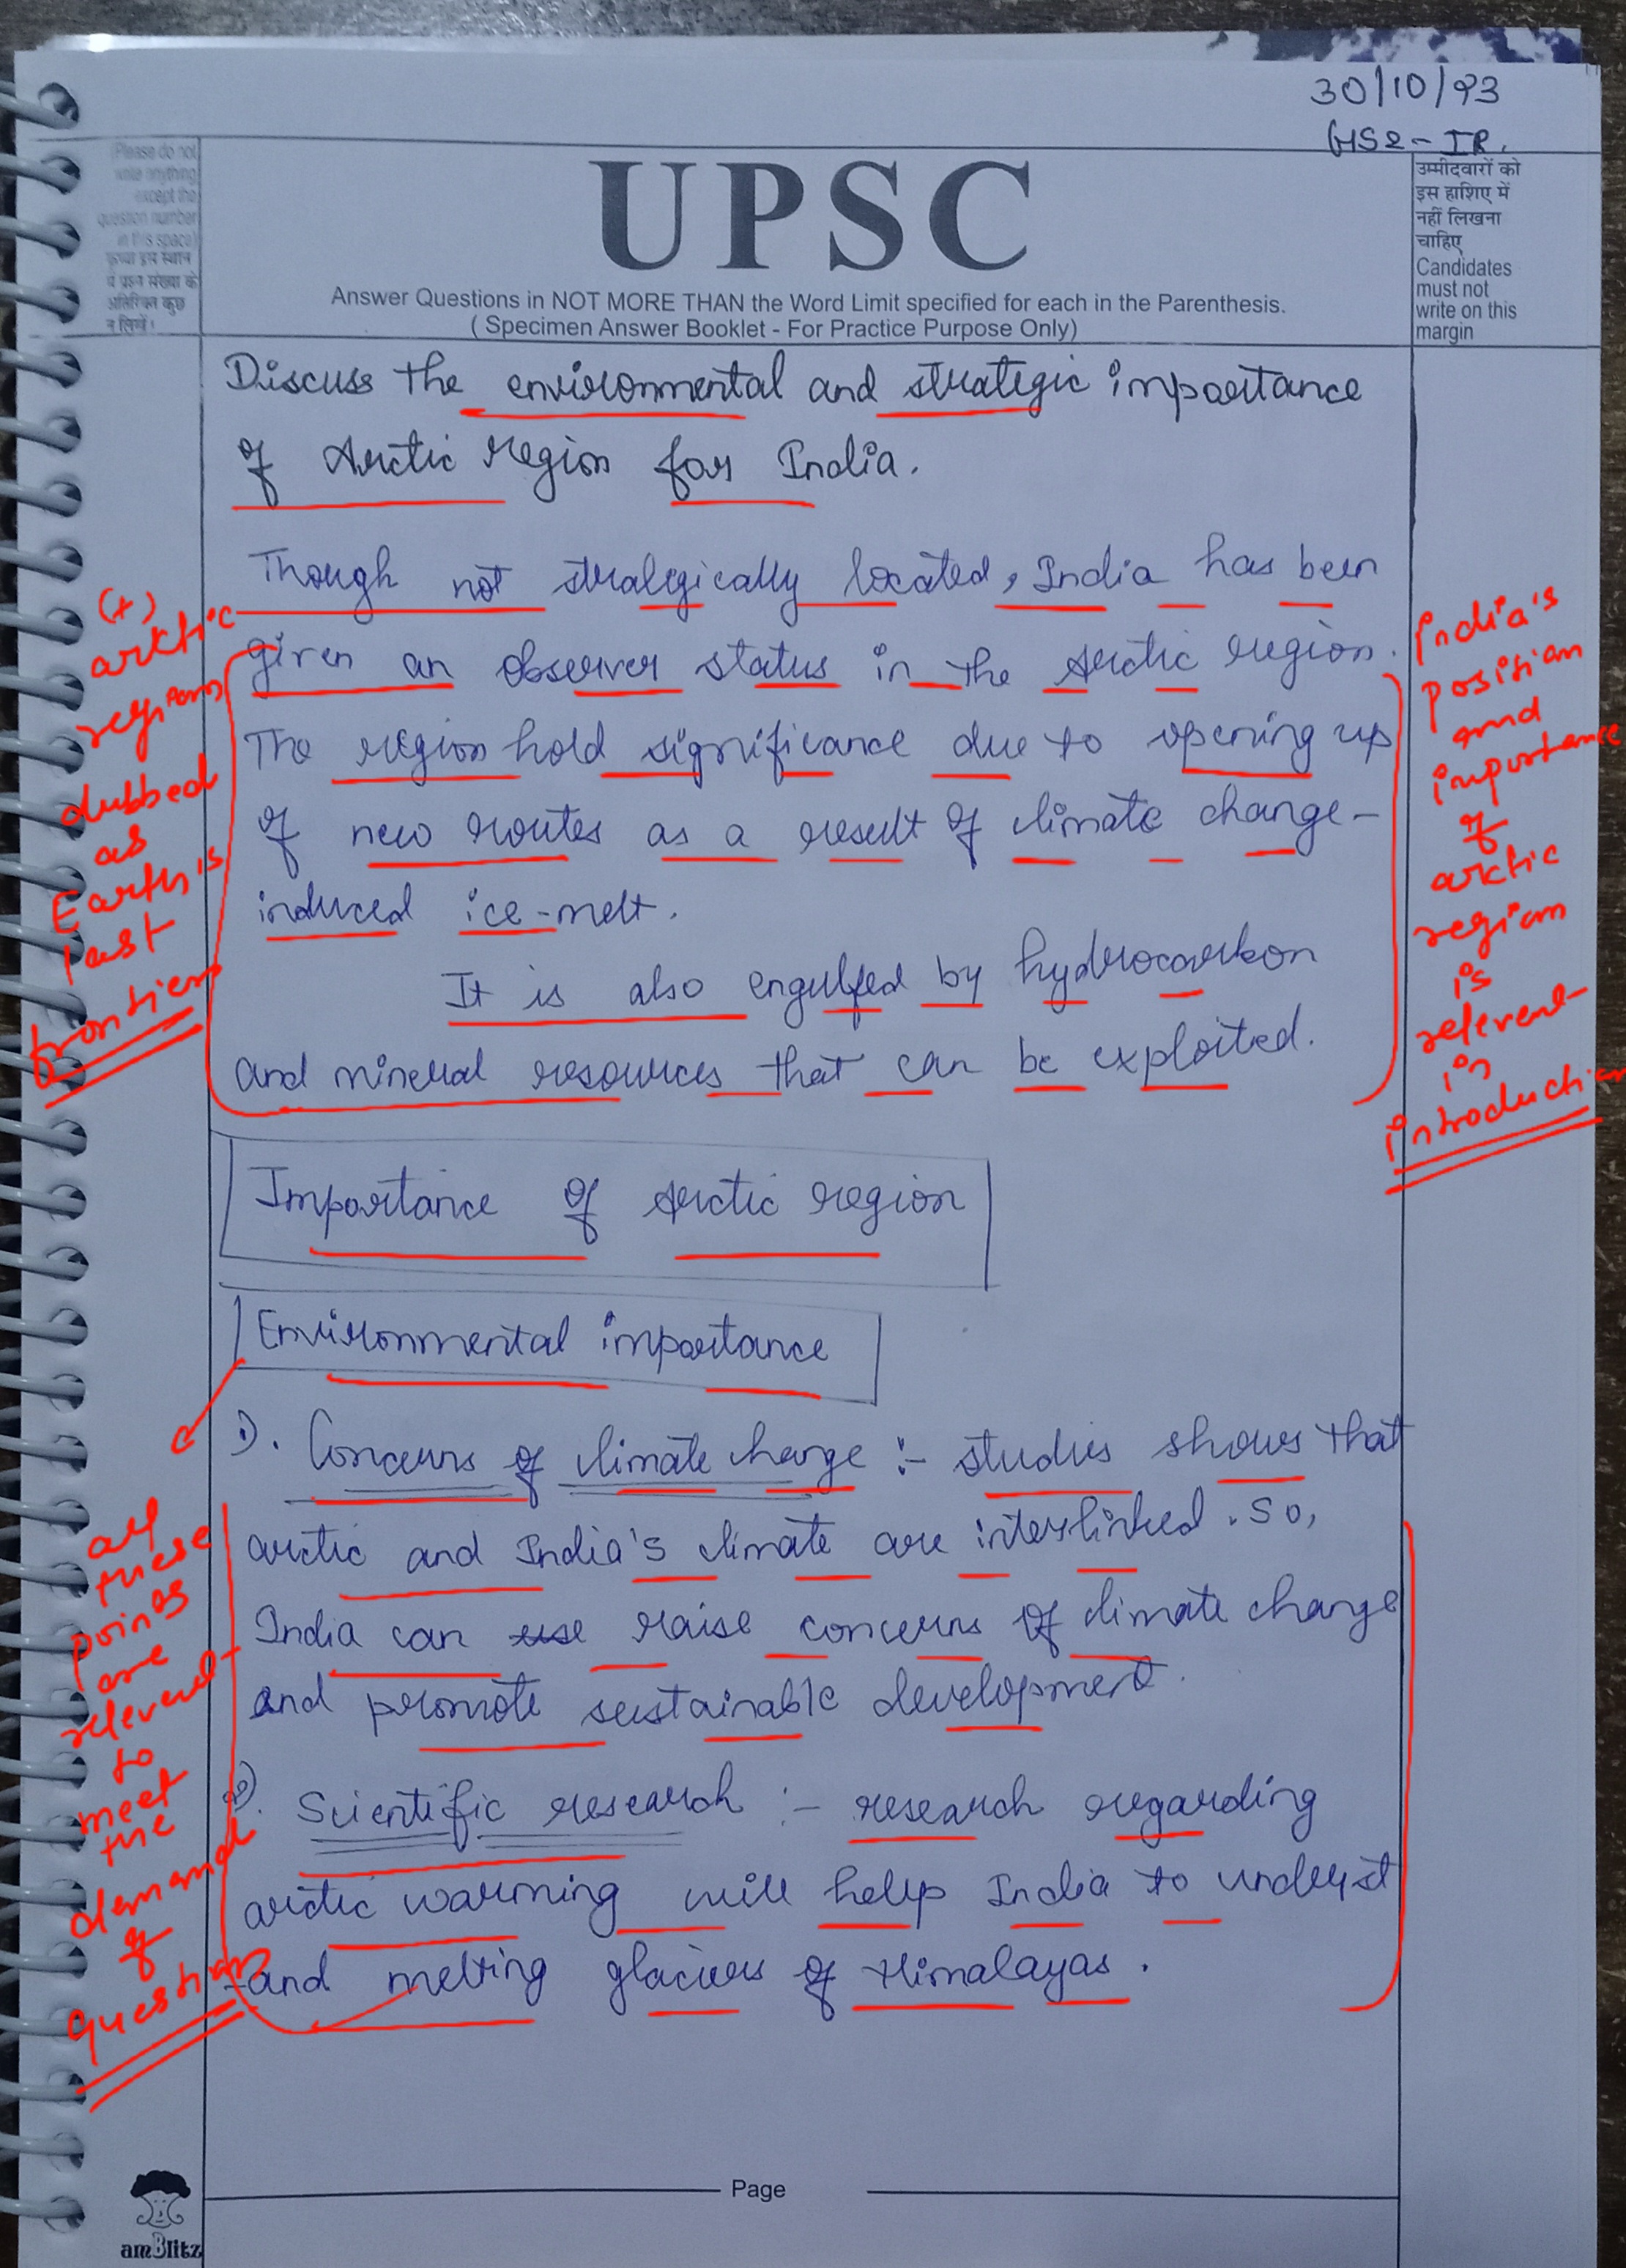 30/10/23
GS2 - IR.
(Please do not
write anything
except the
question number
in this space)
कृपया इस स्थान
में प्रश्न संख्या के
अतिरिक्त कुछ
न लिखें।
UPSC
Answer Questions in NOT MORE THAN the Word Limit specified for each in the Parenthesis.
( Specimen Answer Booklet - For Practice Purpose Only)
उम्मीदवारों को
इस हाशिए में
नहीं लिखना
चाहिए
Candidates
must not
write on this
margin
Discuss the environmental and strategic importance
of Arctic region for India.
Though not strategically located, India has been
given an observer status in the Arctic region.
The region hold significance due to opening up
of new routes as a result of climate change-
induced ice-melt.
It is also engulfed by hydrocarbon
and mineral resources that can be exploited.
(+)
arktic
region
dubbed
as
Earth's
last
frontier
India's
position
and
importance
of
arktic
region
is
relevent
in
introduction
Importance of Arctic region
Environmental importance
1). Concerns of climate change :- studies shows that
arctic and India's climate are interlinked. So,
India can use raise concerns of climate change
and promote sustainable development.
2). Scientific research :- research regarding
arctic warming will help India to underst
-and melting glaciers of Himalayas.
all
these
points
are
relevent
to
meet
the
demand
of
question
Page
amBlitz